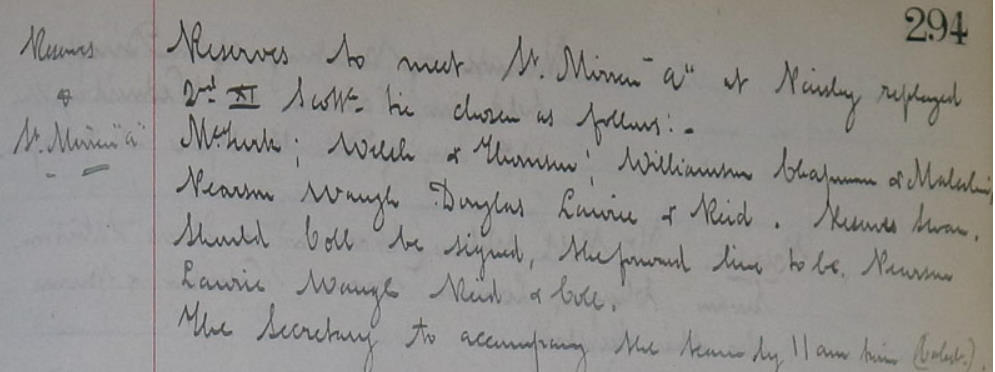 294
Reserves
&
St. Mirren "A"
Reserves to meet St. Mirren "A" at Paisley replayed
2nd XI Scott. tie chosen as follows:-
McTurk; Welch & Thomson; Williamson Chapman & Malcolm,
Pearson Waugh Douglas Lawrie & Reid. Reserves Swan.
Should Coll be signed, the forward line to be, Pearson
Lawrie Waugh Reid & Coll.
The Secretary to accompany the team by 11 am train